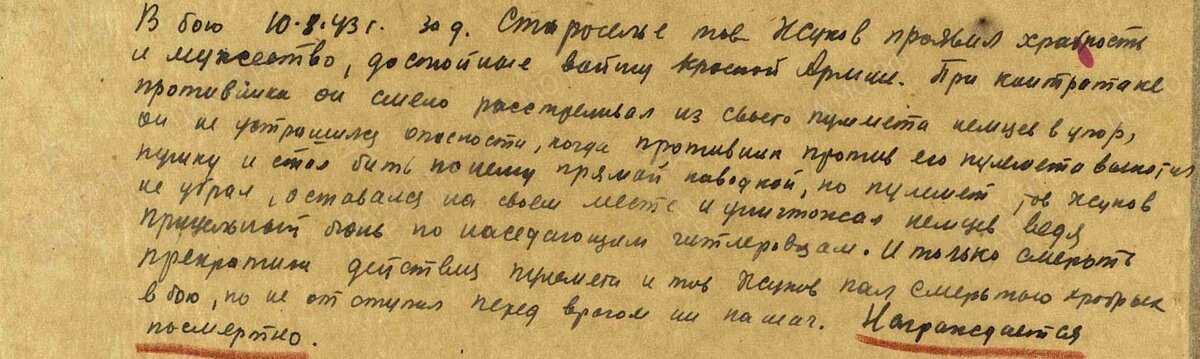 В бою 10.8.43г. за д. Староселье тов Жуков проявил храбрость
и мужество, достойные воину Красной Армии. При контратаке
противника он смело расстреливал из своего пулемета немцев в упор,
он не устрашился опасности, когда противник против его пулемета выкатил
пушку и стал бить по нему прямой наводкой, но пулемет тов Жуков
не убрал, оставался на своем месте и уничтожал немцев ведя
прицельный огонь по наседающим гитлеровцам. И только смерть
прекратила действия пулемета и тов Жуков пал смертью храбрых
в бою, но не отступил перед врагом ни на шаг. Награждается
посмертно.